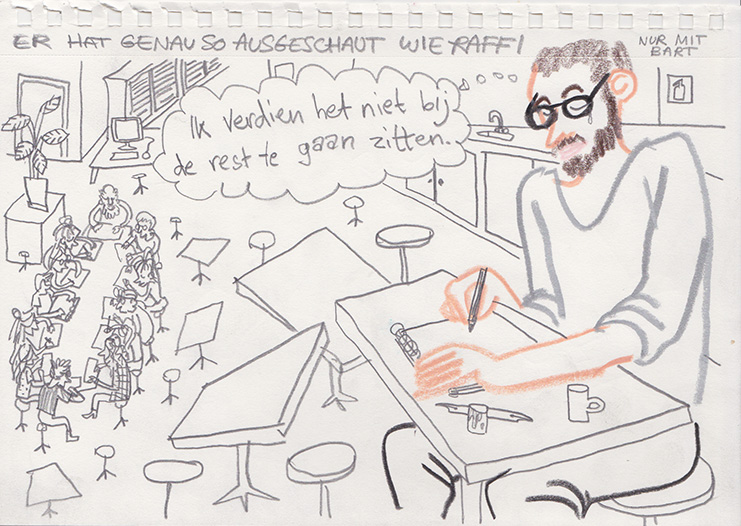 ER HAT GENAU SO AUSGESCHAUT WIE RAFFI
NUR MIT
BART
Ik verdien het niet bij
de rest te gaan zitten.